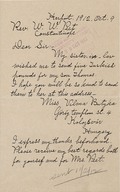 Harpoot 1912 Oct. 9
Rev. W. W. Peet
Constantinople
Dear Sir:-
My sister-in-law
wished me to send five Turkish
pounds for my son Thomas.
I hope you will be so kind to send
them to her at the address -
Miss Vilma
Görög templom
Hungary
I express my thanks beforehand
Please receive my best regard both
for yourself and for Mrs Peet.